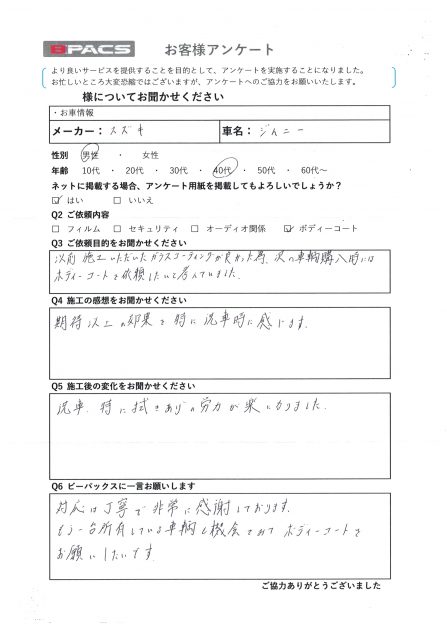 BPACS お客様アンケート
より良いサービスを提供することを目的として、アンケートを実施することになりました。
お忙しいところ大変恐縮ではございますが、アンケートへのご協力をお願いいたします。
様についてお聞かせください
・お車情報
メーカー： スズキ 車名： ジムニー
性別 男性 ・ 女性
年齢 10代 ・ 20代 ・ 30代 ・ 40代 ・ 50代 ・ 60代～
ネットに掲載する場合、アンケート用紙を掲載してもよろしいでしょうか？
☑ はい □ いいえ
Q2 ご依頼内容
□ フィルム □ セキュリティ □ オーディオ関係 ☑ ボディーコート
Q3 ご依頼目的をお聞かせください
以前施工いただいたガラスコーティングが良かった為、次の車輌購入時には
ボディーコートを依頼したいと考えていました。
Q4 施工の感想をお聞かせください
期待以上の効果で特に洗車時に感じます。
Q5 施工後の変化をお聞かせください
洗車、特に拭きあげの労力が楽になりました。
Q6 ビーパックスに一言お願いします
対応は丁寧で非常に感謝しております。
もう一台所有している車輌も機会をみてボディーコートを
お願いしたいです。
ご協力ありがとうございました